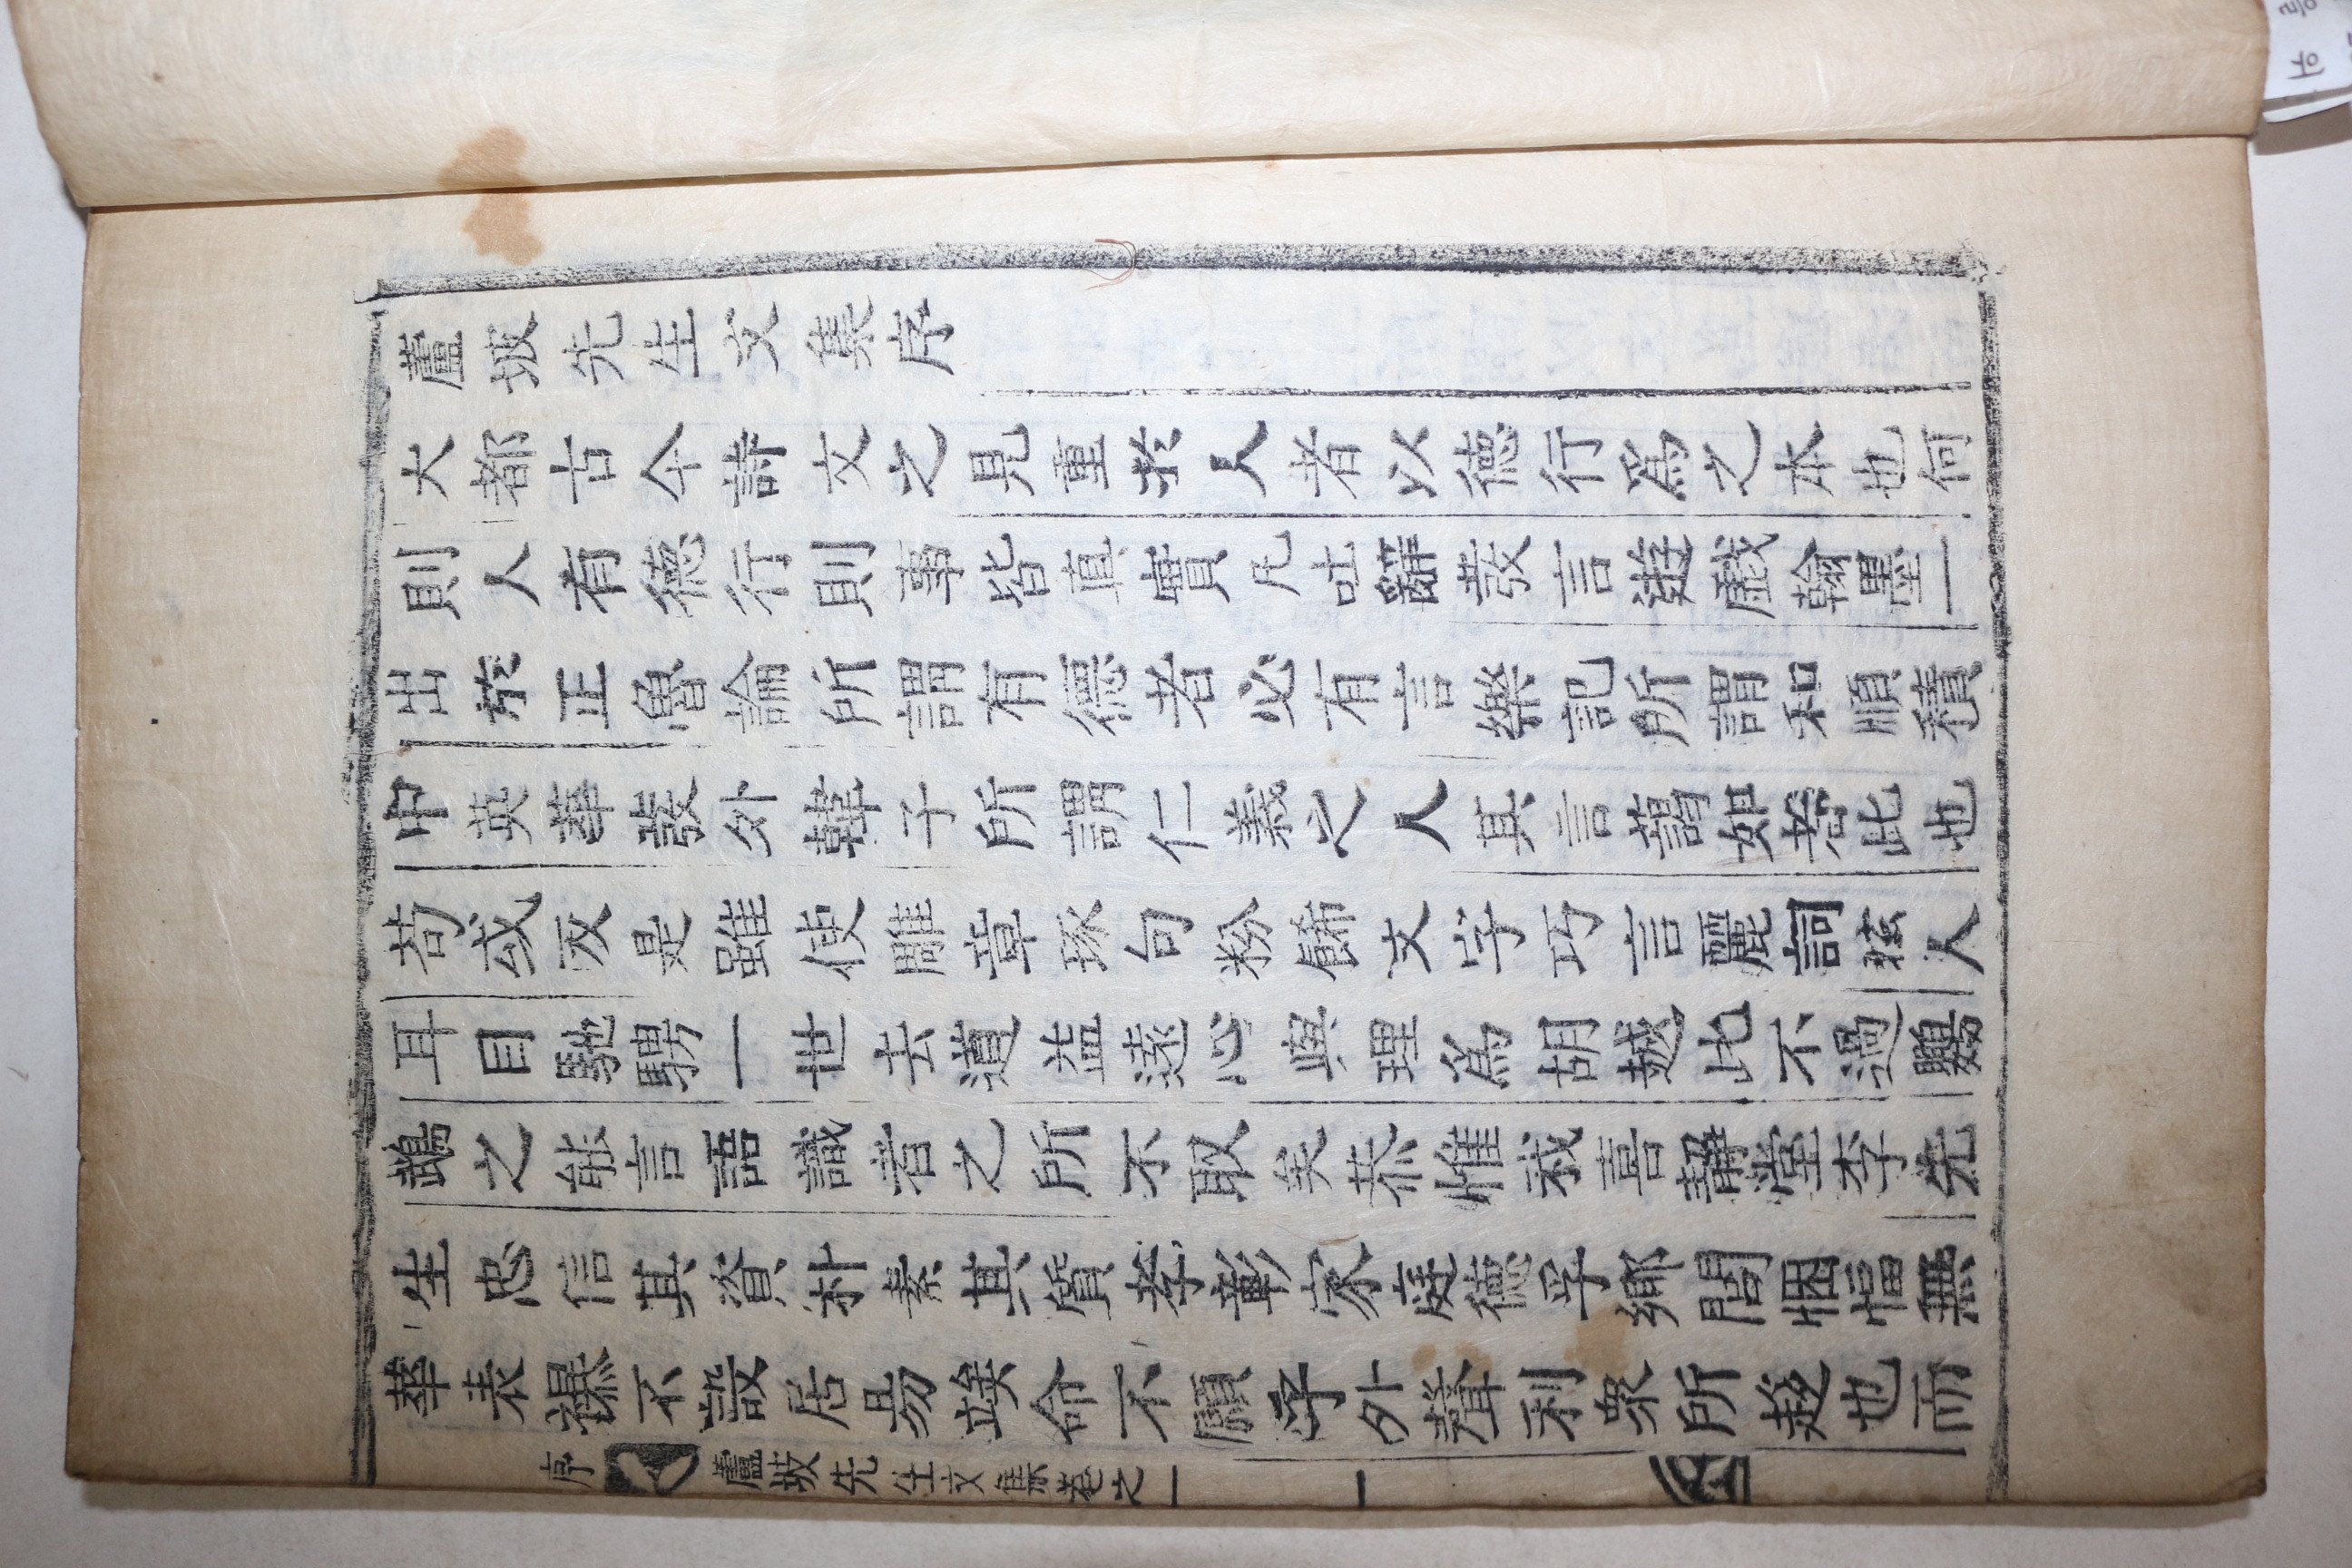 蘆坡先生文集序
大都古今詩文之見重於人者以德行爲之本也何
則人有德行則事皆眞實凡吐辭發言遊戱翰墨一
出於正魯論所謂有德者必有言樂記所謂和順積
中英華發外韓子所謂仁義之人其言藹如者此也
苟或反是雖使雕章琢句粉餙文字巧言麗詞眩人
耳目馳騁一世去道益遠心與理爲胡越此不過鸚
鵡之能言語識者之所不取矣恭惟我喜靜堂李先
生忠信其資朴素其質孝彰家庭德孚鄕閭悃愊無
華表襮不設居易竢命不願乎外聲利衆所趍也而
序 蘆坡先生文集卷之一 一